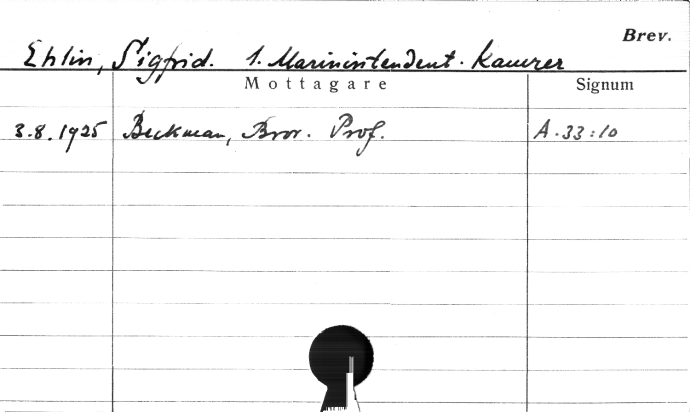 Brev.
Ehlin, Sigfrid. 1. Marinintendent. Kamrer
Mottagare Signum
3.8.1925 Beckman, Bror. Prof. A.33:10